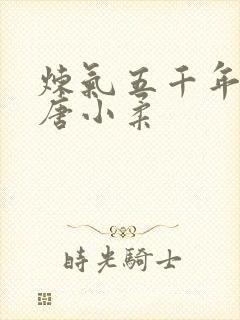 炼氣五千年
唐小柔
時光騎士